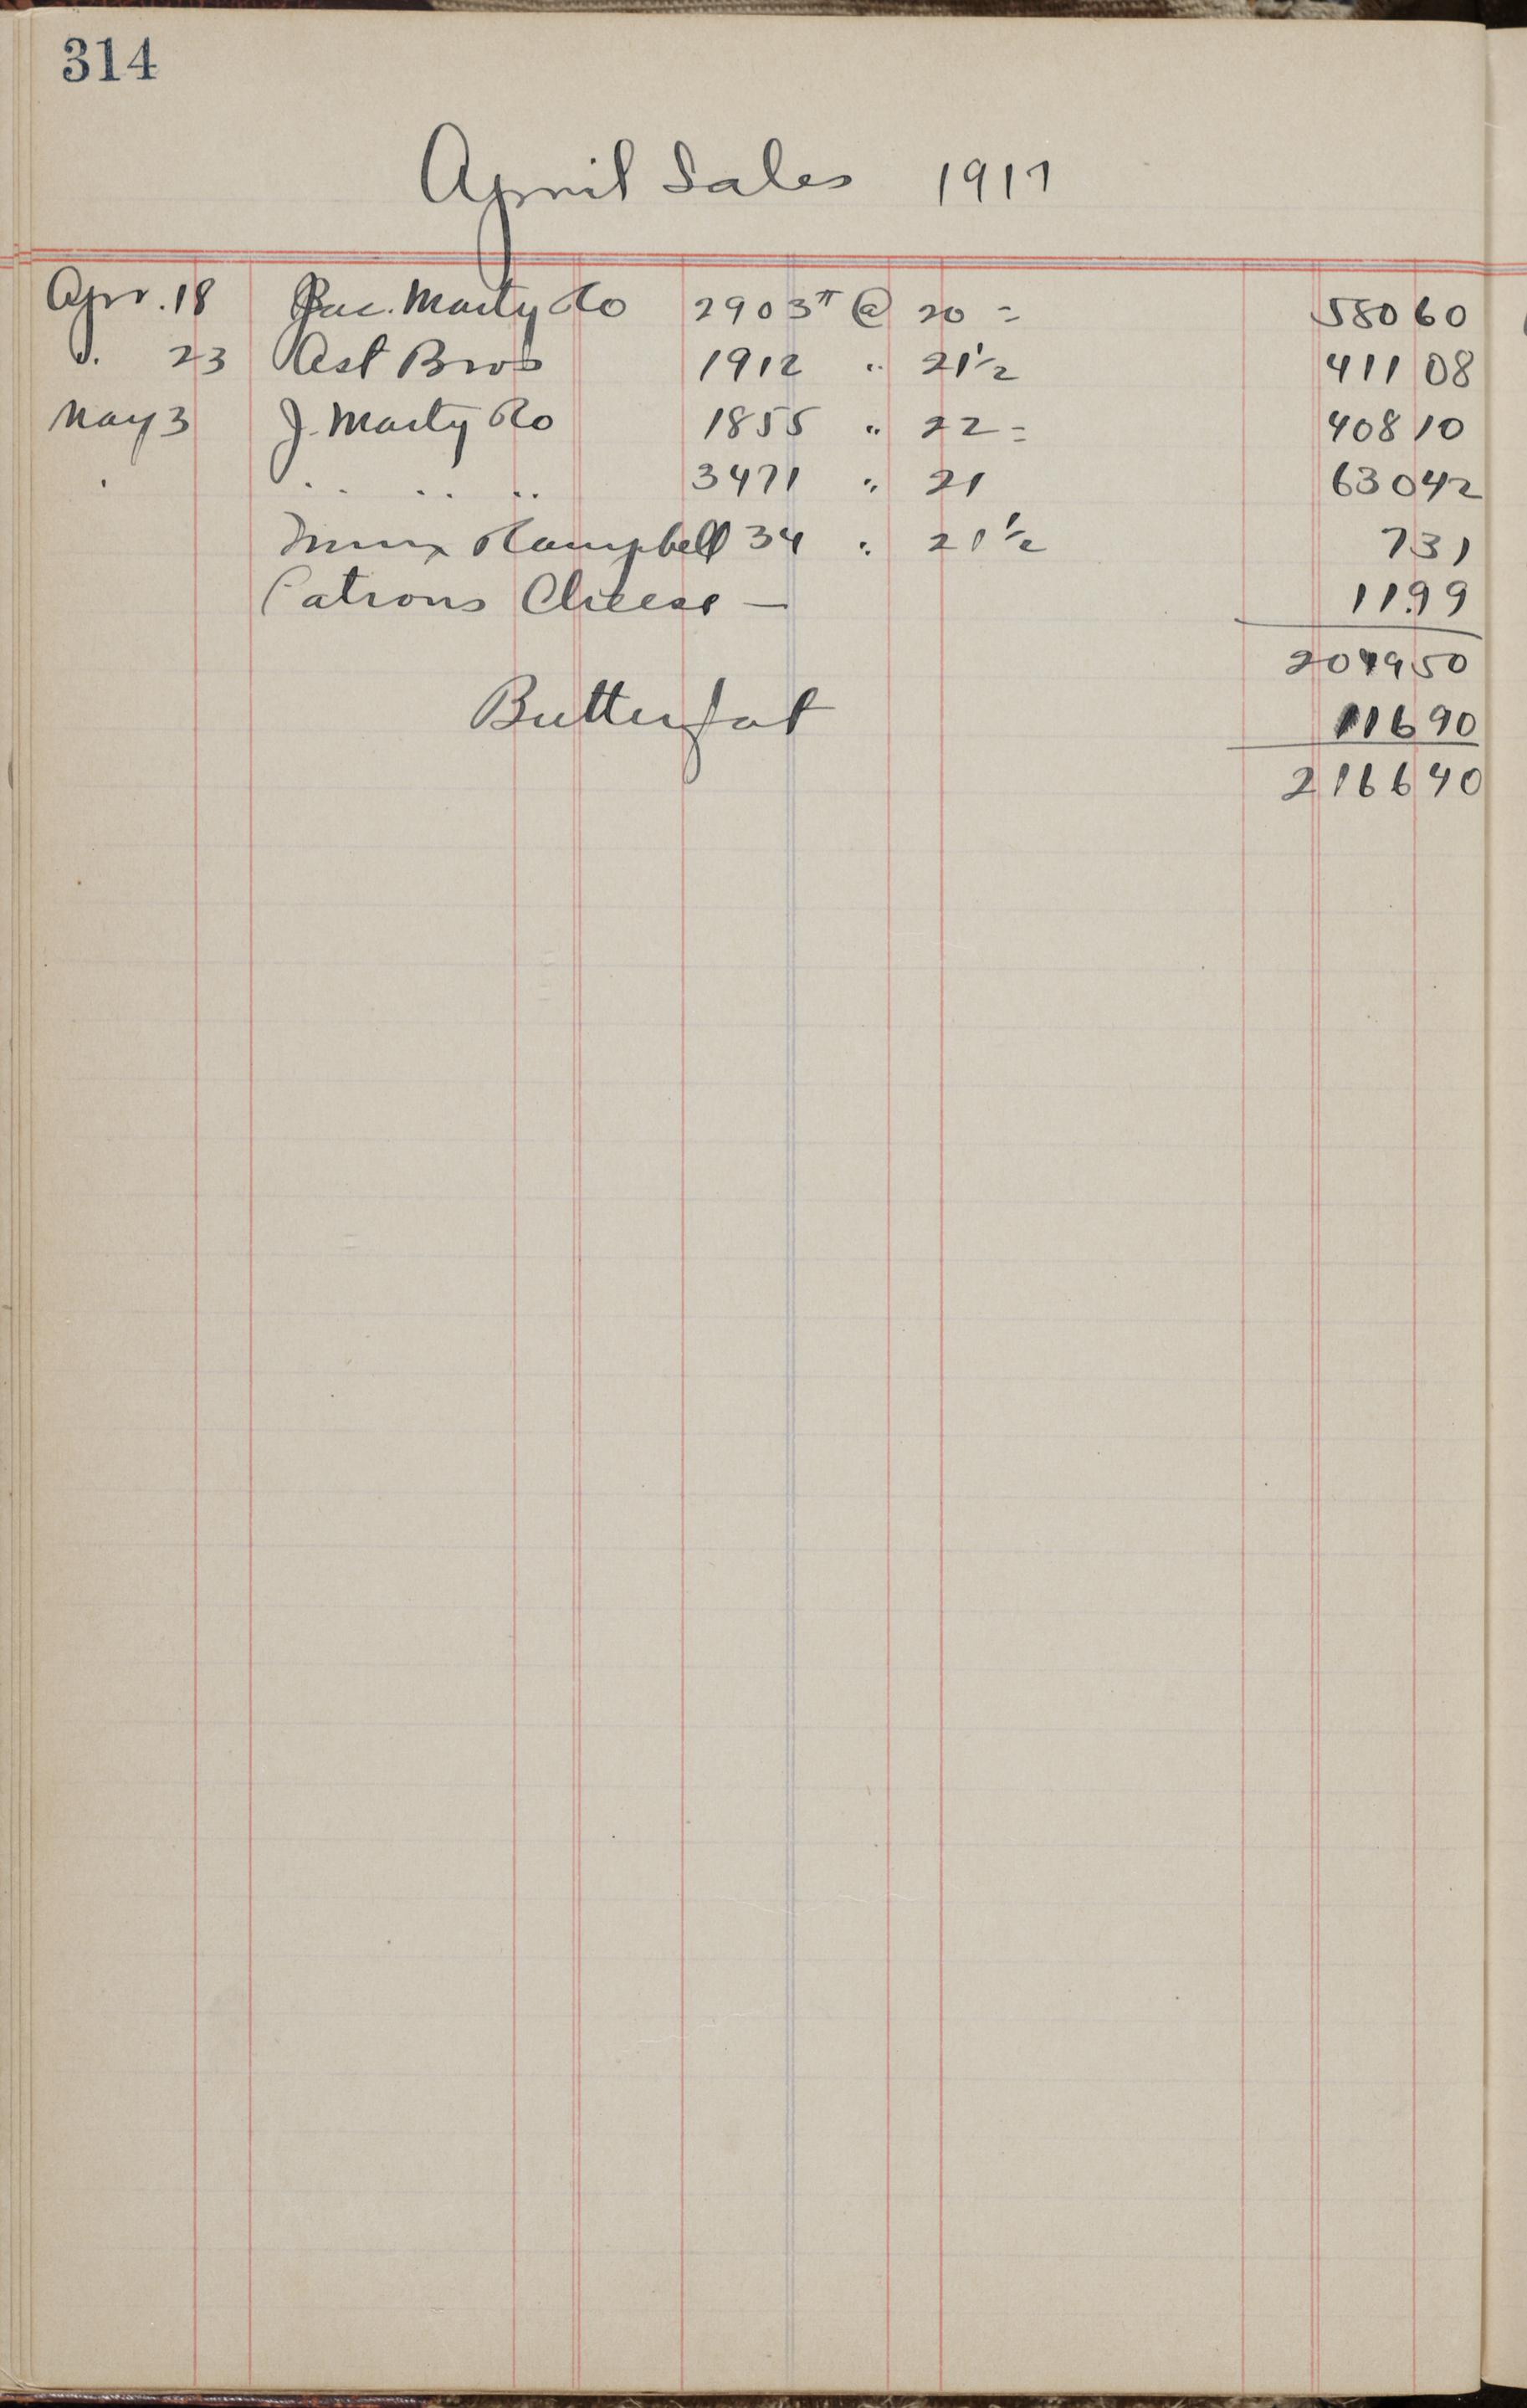 314
April Sales 1917
Apr. 18 Jac. Marty Co 2903 # @ 20 = 580 60
" 23 Ast Bros 1912 " 21 1/2 411 08
May 3 J. Marty Co 1855 " 22 = 408 10
" " " " 3471 " 21 630 42
Campbell 34 " 21 1/2 7 31
Patrons Cheese — 11.99
2049 50
Butterfat 116 90
2166 40